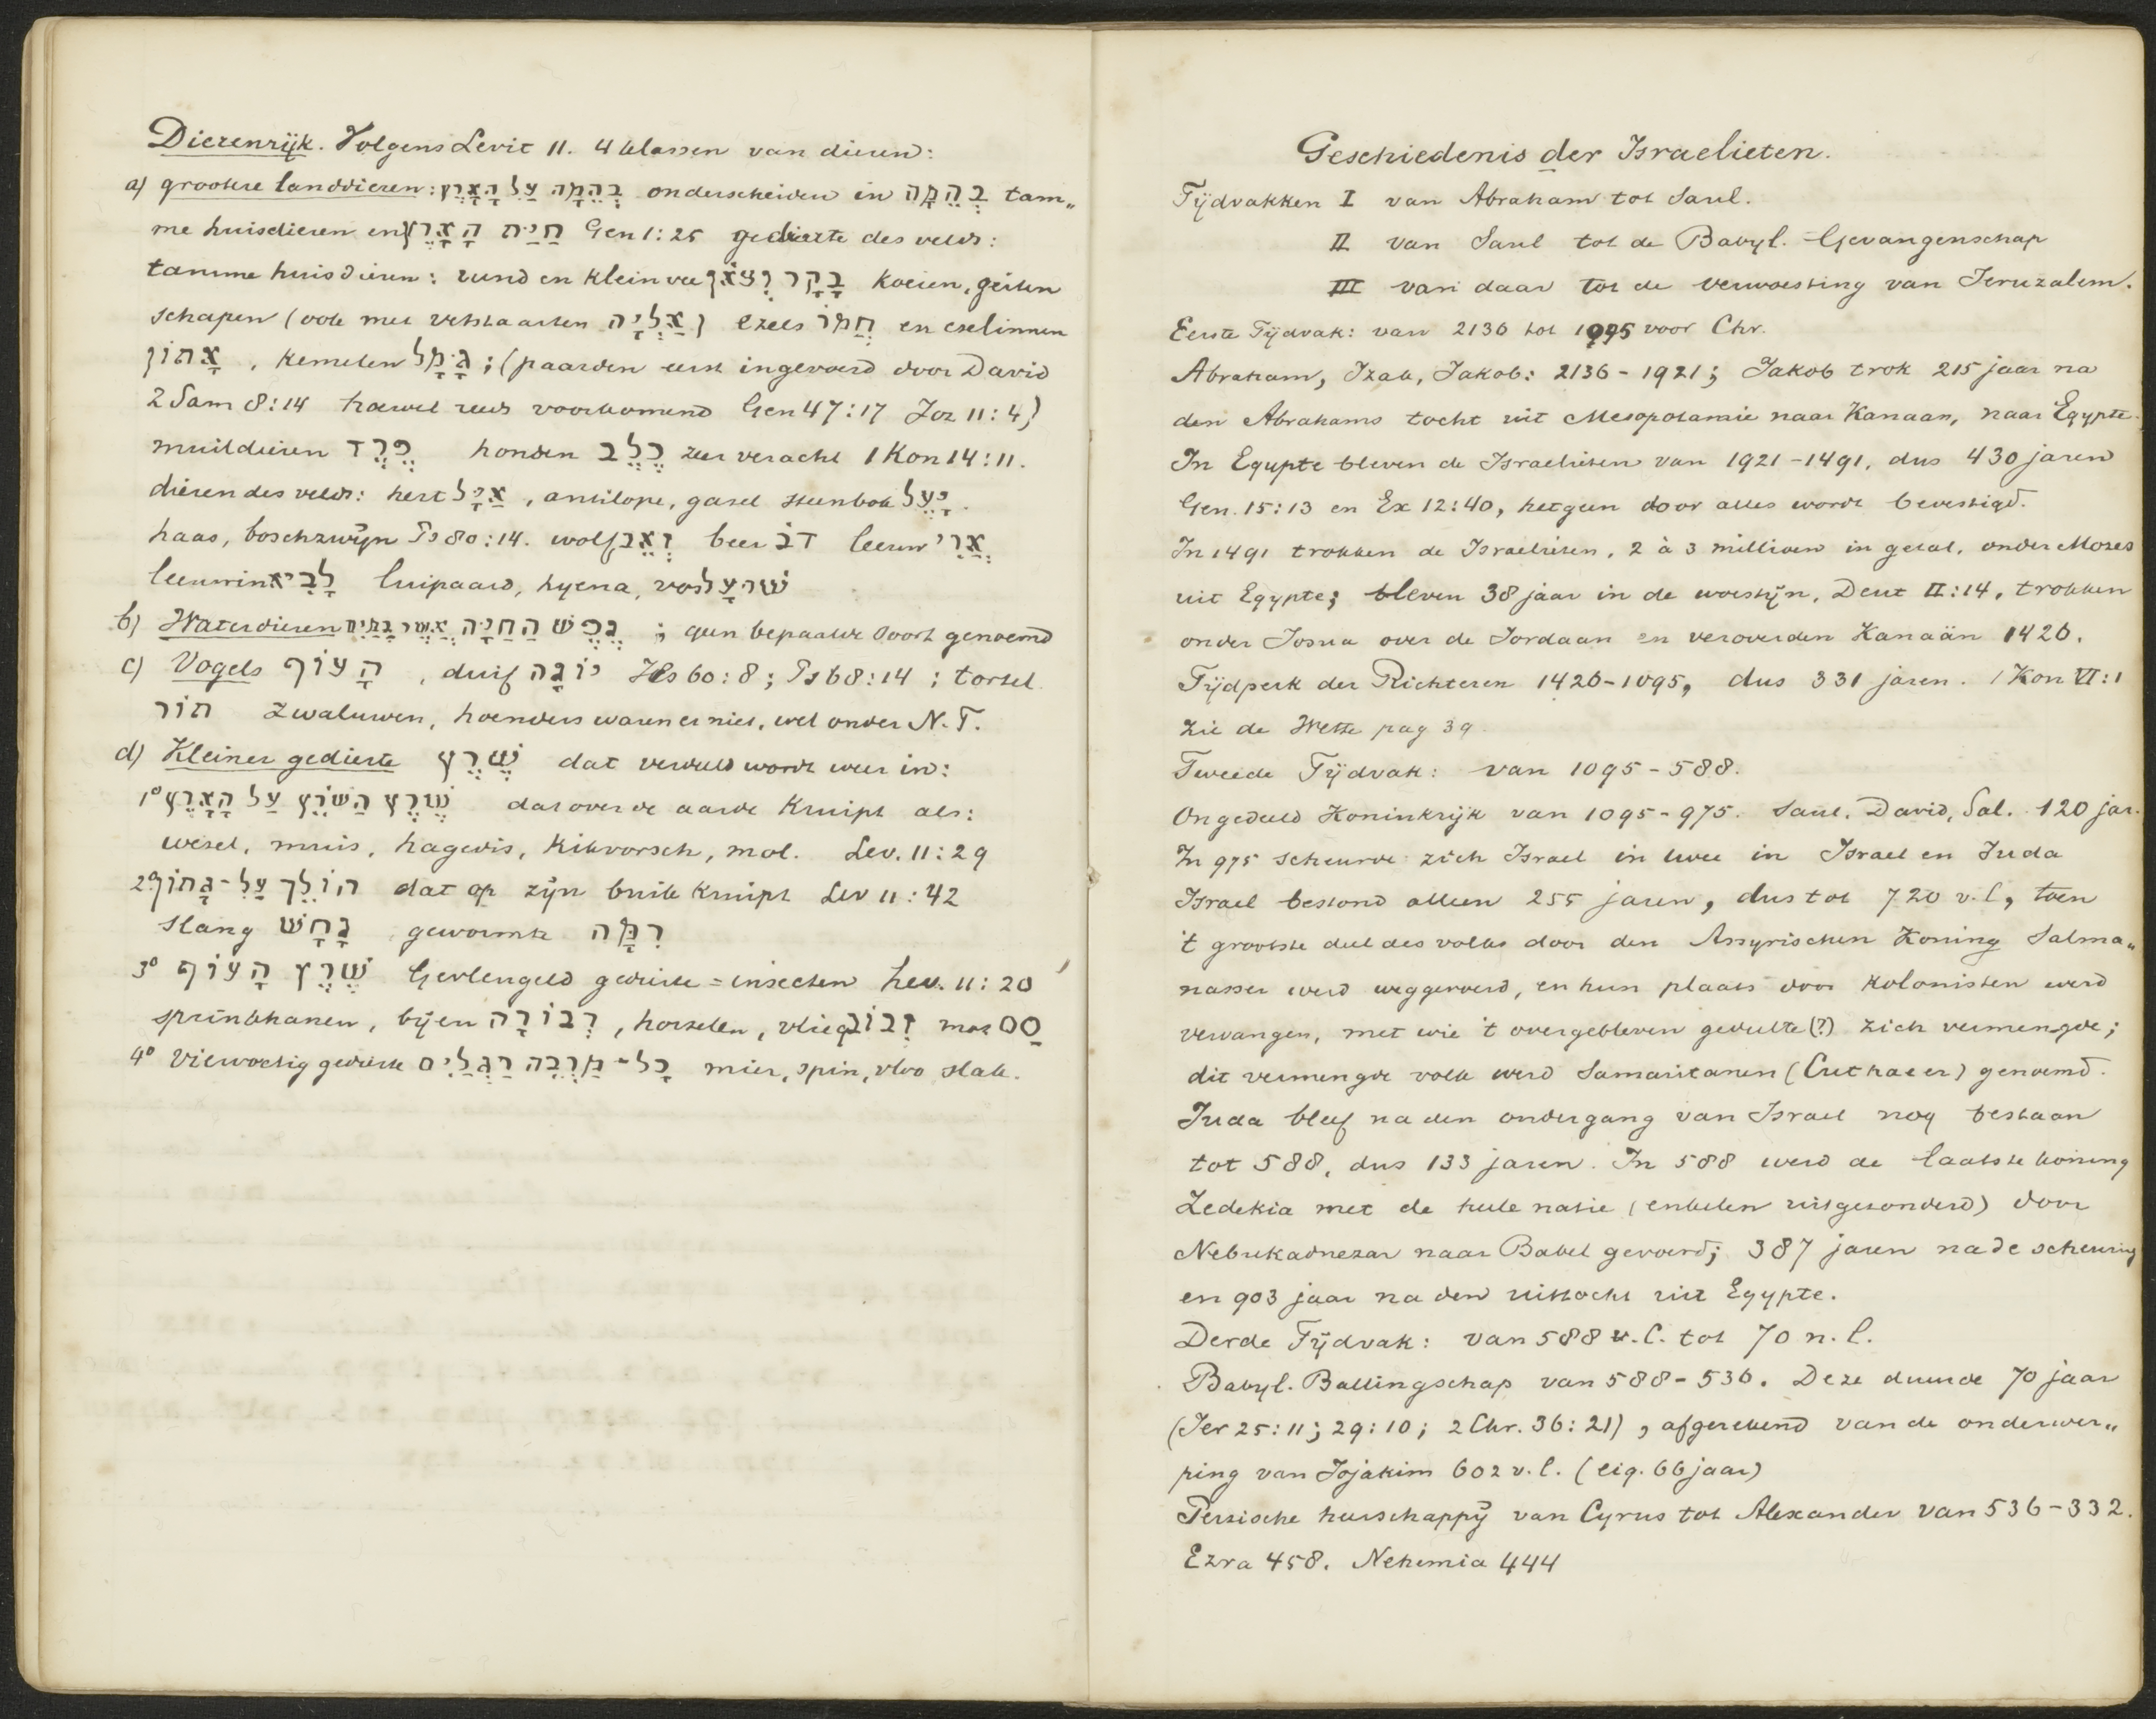 Dierenrijk. Volgens Levit 11. 4 klassen van dieren:
a) grootere landdieren: בְּהֵמָה עַל הָאָרֶץ onderscheiden in בְּהֵמָה tam„
me huisdieren en חַיַּת הָאָרֶץ Gen 1:25 gedierte des velds:
tamme huisdieren: rund en klein vee בָּקָר וְצֹאן koeien, geiten
schapen (ook met vetstaarten אַלְיָה) ezels חֲמֹר en ezelinnen
אָתוֹן, kemelen גָּמָל; (paarden eerst ingevoerd door David
2 Sam 8:14 hoewel reeds voorkomend Gen 47:17 Joz 11:4)
muildieren פֶּרֶד honden כֶּלֶב zeer veracht 1 Kon 14:11.
dieren des velds: hert אַיָּל, antilope, gasel steenbok יָעֵל.
haas, boschzwijn Ps 80:14. wolf זְאֵב beer דֹּב leeuw אֲרִי
leeuwin לָבִיא luipaard, hyena, vos שׁוּעָל
b) Waterdieren נֶפֶשׁ הַחַיָּה אֲשֶׁר בַּמַּיִם; geen bepaalde soort genoemd
c) Vogels הָעוֹף, duif יוֹנָה Jes 60:8; Ps 68:14; tortel
תּוֹר zwaluwen, hoenders waren er niet, wel onder N.T.
d) Kleiner gedierte שֶׁרֶץ dat verdeeld wordt weer in:
1° שֶׁרֶץ הַשֹּׁרֵץ עַל הָאָרֶץ dat over de aarde kruipt als:
wezel, muis, hagedis, kikvorsch, mol. Lev. 11:29
2° הוֹלֵךְ עַל-גָּחוֹן dat op zijn buik kruipt Lev 11:42
slang נָחָשׁ gewormte רִמָּה
3° שֶׁרֶץ הָעוֹף Gevleugeld gedierte = insecten Lev. 11:20
sprinkhanen, bijen דְּבוֹרָה, horzelen, vlieg זְבוּב mot סָס
4° Vilvoetig gedierte כָּל-מַרְבֶּה רַגְלַיִם mier, spin, vloo slak.
Geschiedenis der Israelieten.
Tijdvakken I van Abraham tot Saul.
II van Saul tot de Babyl. Gevangenschap
III van daar tot de verwoesting van Jeruzalem.
Eerste Tijdvak: van 2136 tot 1095 voor Chr.
Abraham, Izak, Jakob: 2136-1921; Jakob trok 215 jaar na
den Abrahams tocht uit Mesopotamie naar Kanaan, naar Egypte.
In Egypte bleven de Israelieten van 1921-1491, dus 430 jaren
Gen. 15:13 en Ex 12:40, hetgeen door alles wordt bevestigd.
In 1491 trokken de Israelieten, 2 à 3 millioen in getal, onder Mozes
uit Egypte; bleven 38 jaar in de woestijn, Deut II:14, trokken
onder Josua over de Jordaan en veroverden Kanaän 1426.
Tijdperk der Richteren 1426-1095, dus 331 jaren. 1 Kon VI:1
Zie de Wette pag 39.
Tweede Tijdvak: van 1095-588.
Ongedeeld Koninkrijk van 1095-975. Saul, David, Sal. 120 jar.
In 975 scheurde zich Israel in twee in Israel en Juda
Israel bestond alleen 255 jaren, dus tot 720 v.C, toen
't grootste deel des volks door den Assyrischen Koning Salma„
nasser werd weggevoerd, en hun plaats door kolonisten werd
vervangen, met wie 't overgebleven gedeelte (?) zich vermengde;
dit vermengde volk werd Samaritanen (Cuthaeer) genoemd.
Juda bleef na den ondergang van Israel nog bestaan
tot 588, dus 133 jaren. In 588 werd de laatste koning
Zedekia met de heele natie (enkelen uitgezonderd) door
Nebukadnezar naar Babel gevoerd; 387 jaren na de scheuring
en 903 jaar na den uittocht uit Egypte.
Derde Tijdvak: van 588 v.C. tot 70 n.C.
Babyl. Ballingschap van 588-536. Deze duurde 70 jaar
(Jer 25:11; 29:10; 2 Chr. 36:21), afgerekend van de onderwer„
ping van Jojakim 602 v.C. (eig. 66 jaar)
Perzische heerschappij van Cyrus tot Alexander van 536-332.
Ezra 458. Nehemia 444